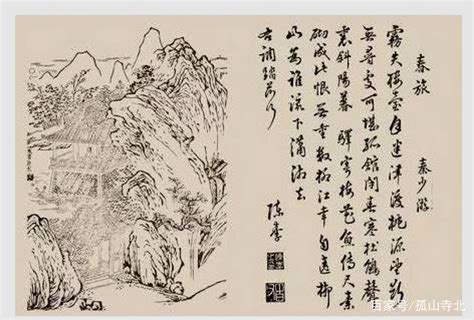 春旅 秦少游
霧失樓臺月迷津渡桃源望斷
無尋處可堪孤館閉春寒杜鵑聲
裏斜陽暮 驛寄梅花魚傳尺素
砌成此恨無重數郴江幸自遶郴
山為誰流下瀟湘去
右調踏莎行
百家号/孤山寺北